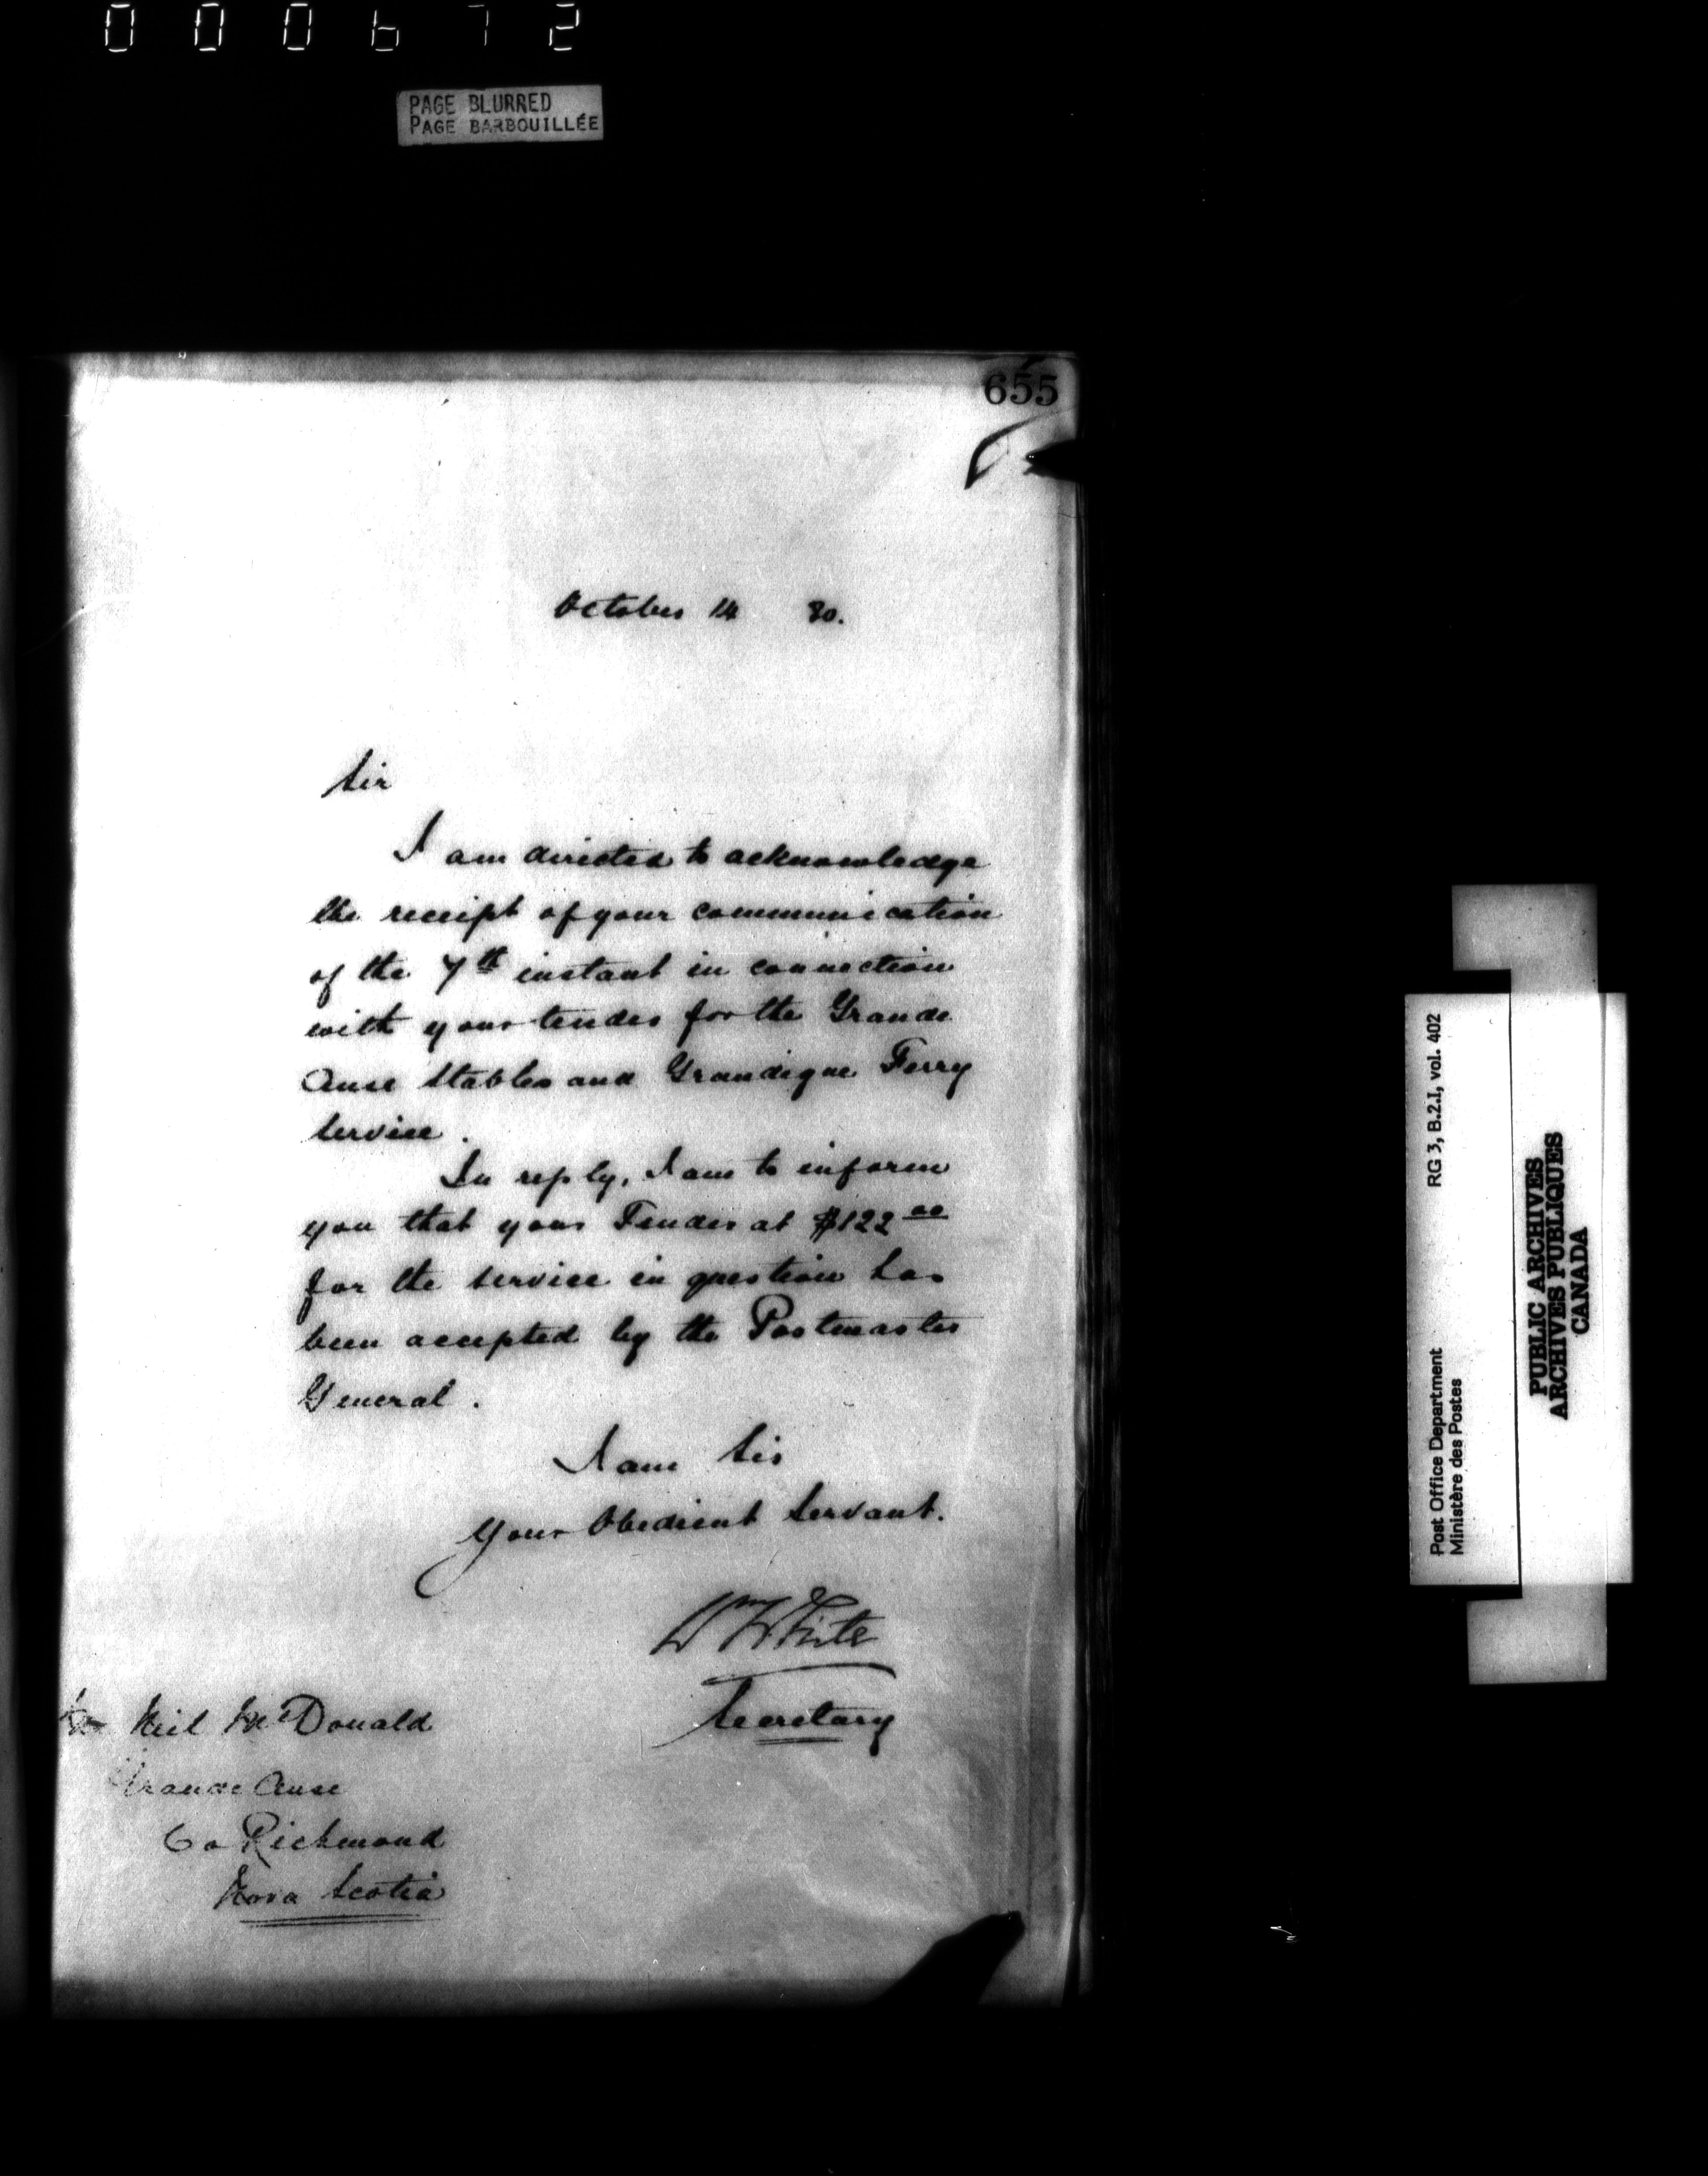 000672
PAGE BLURRED
PAGE BARBOUILLÉE
655
October 14 80.
Sir
I am directed to acknowledge
the receipt of your communication
of the 7th instant in connection
with your tender for the Grande
Anse Stables and Grandique Ferry
Service.
In reply, I am to inform
you that your Tender at $122 00
for the service in question has
been accepted by the Postmaster
General.
I am Sir
Your Obedient Servant.
Wm White
Secretary
Neil McDonald
Grande Anse
Co Richmond
Nova Scotia
Post Office Department RG 3, B.2.I, vol. 402
Ministère des Postes
PUBLIC ARCHIVES
ARCHIVES PUBLIQUES
CANADA